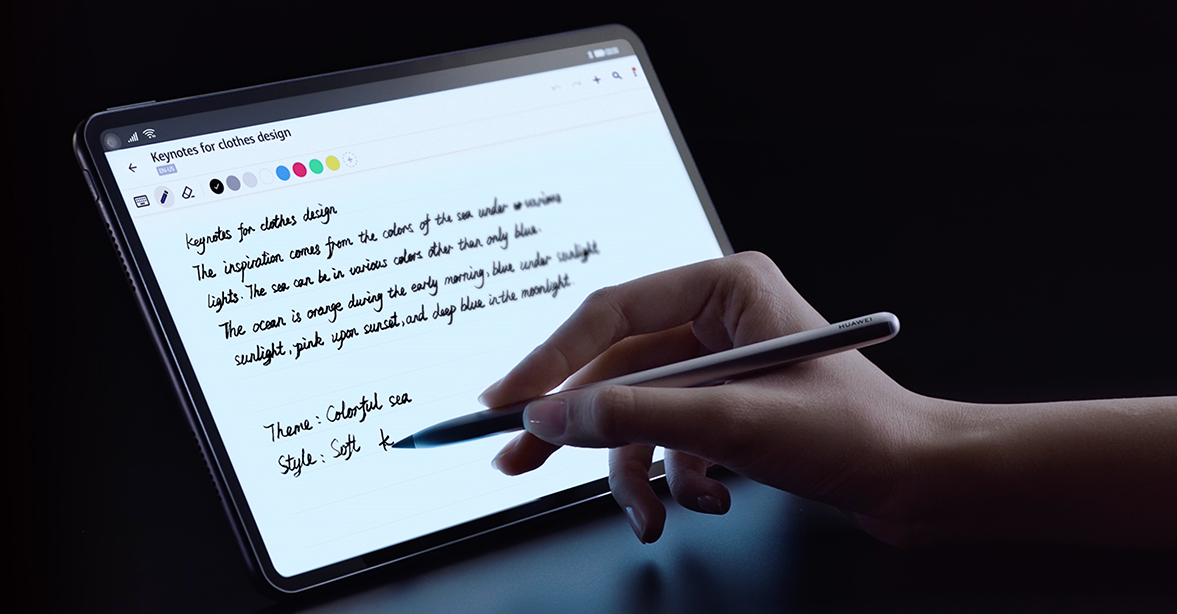 Keynotes for clothes design
EN-US
keynotes for clothes design
The inspiration comes from the colors of the sea under various
lights. The sea can be in various colors other than only blue.
The ocean is orange during the early morning, blue under sunlight,
sunlight, pink upon sunset, and deep blue in the moonlight.
Theme: Colorful sea
Style: Soft k
HUAWEI